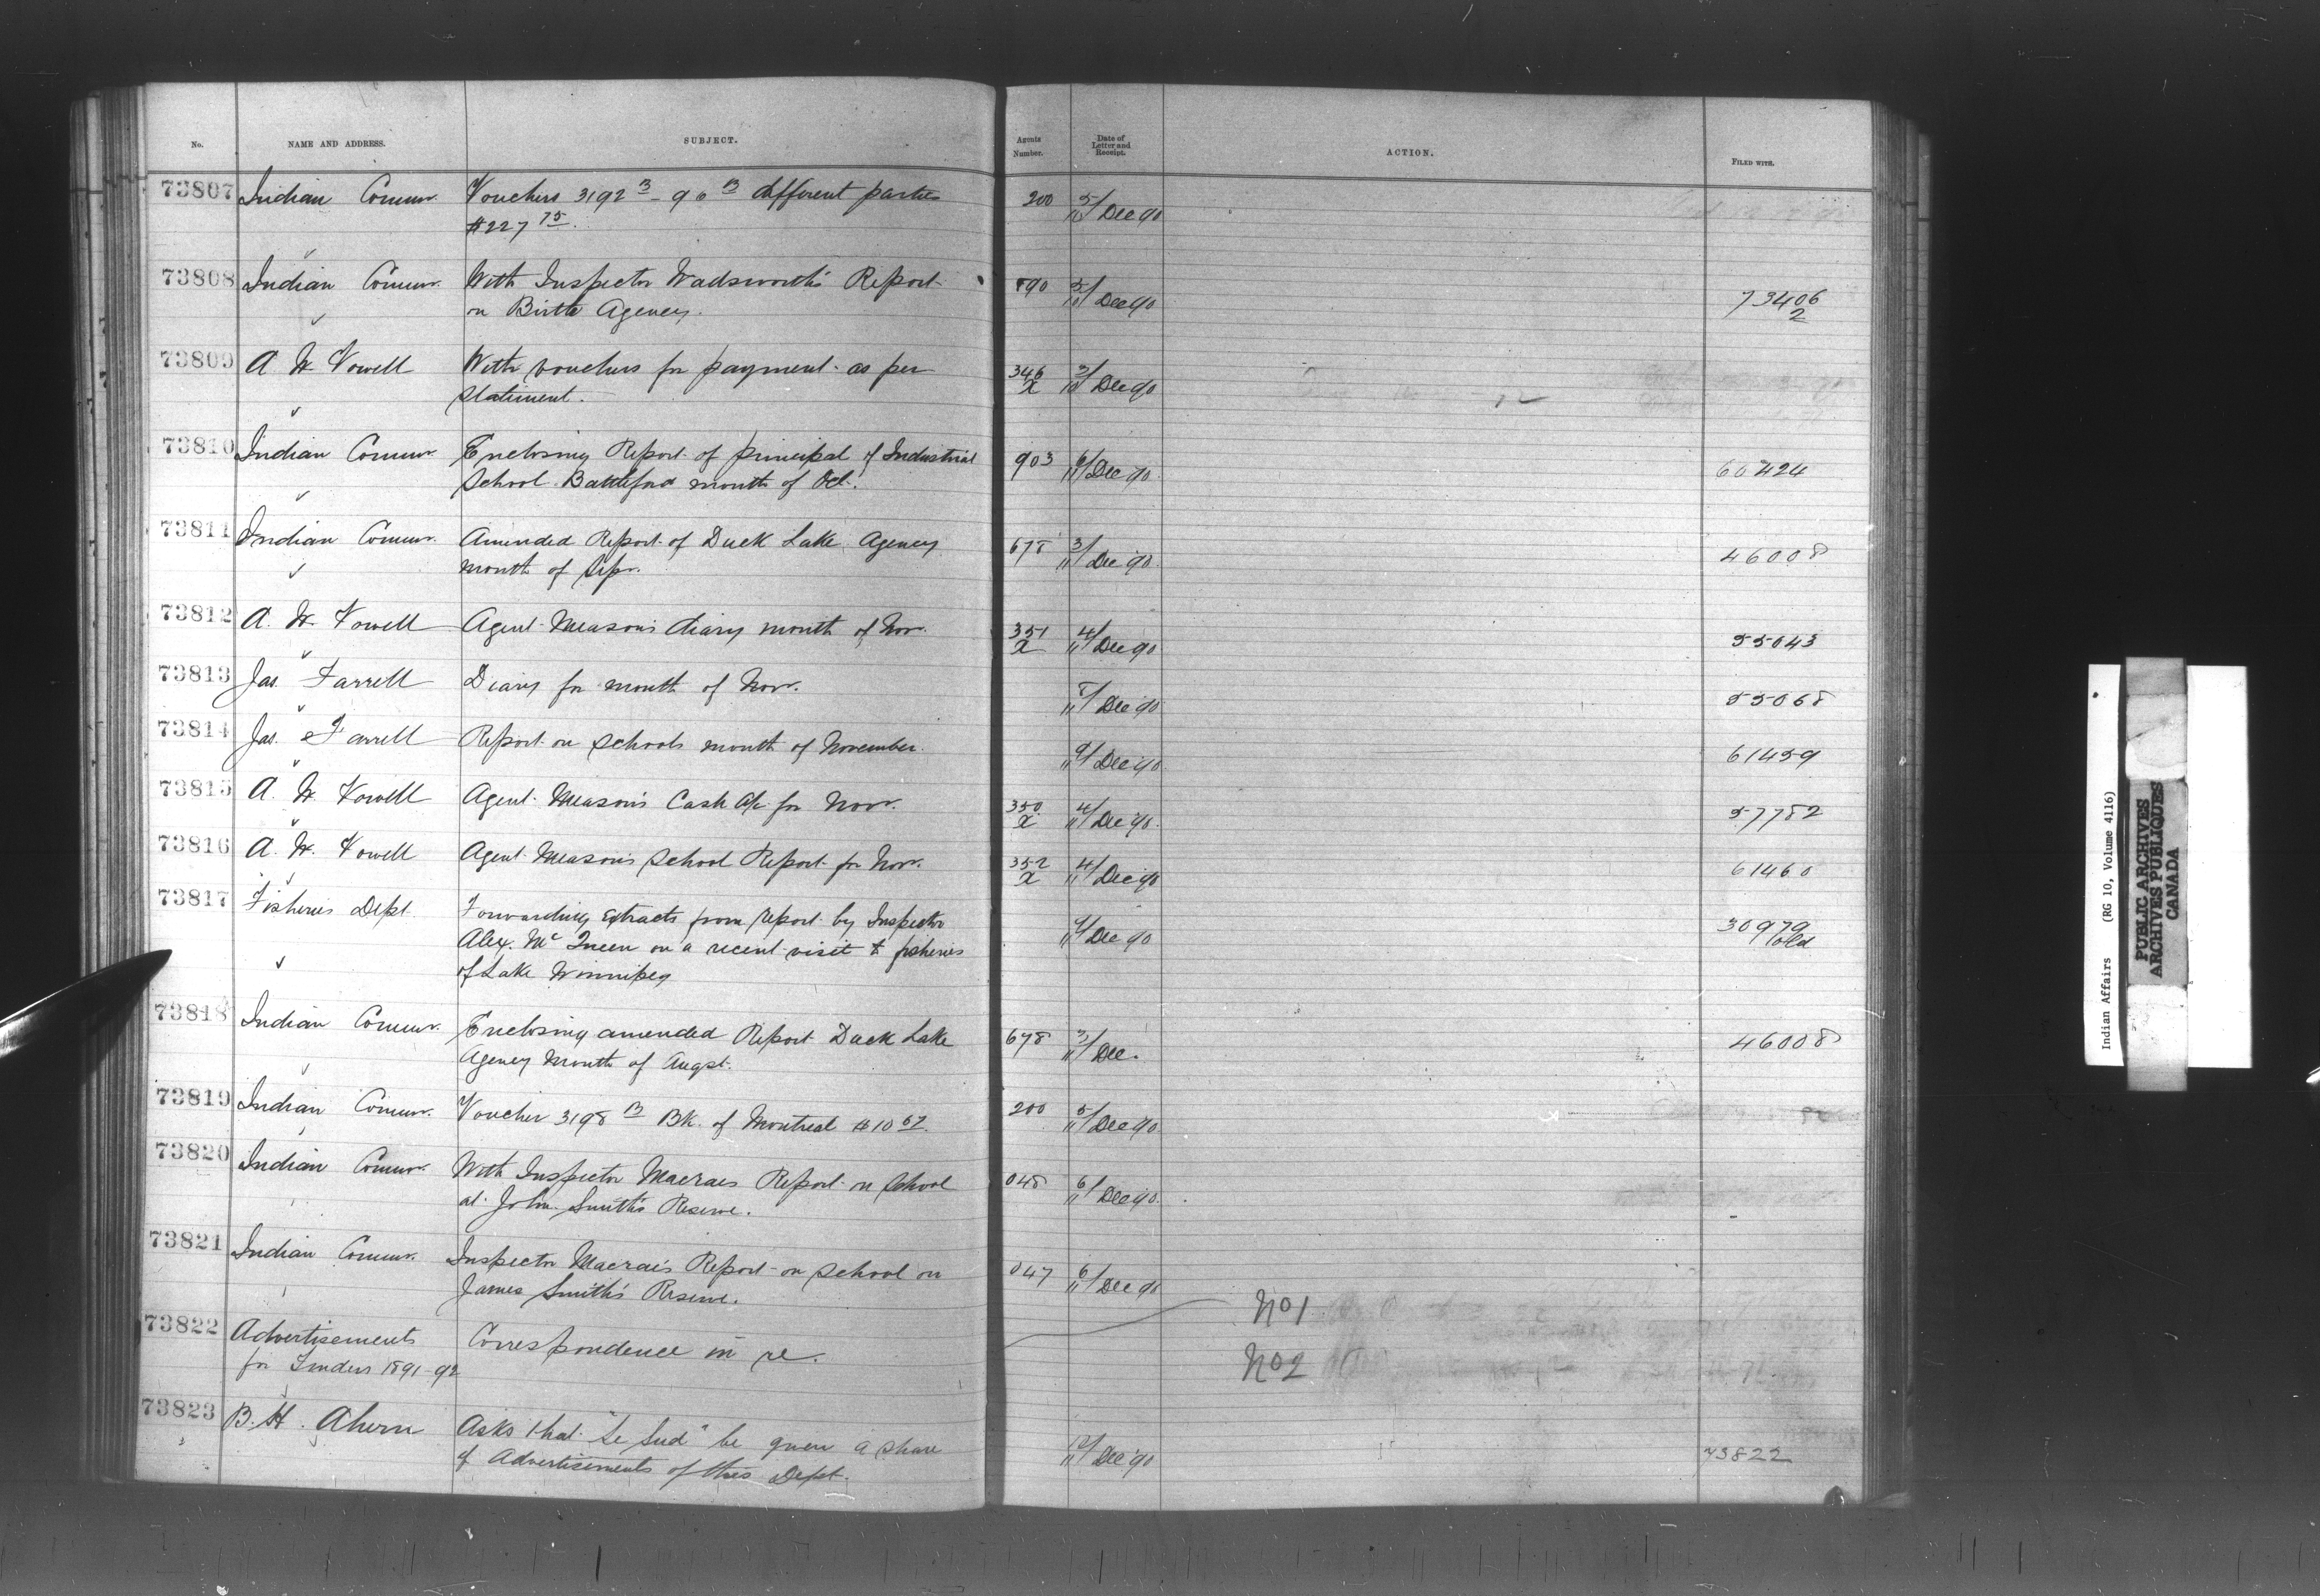 No. NAME AND ADDRESS. SUBJECT. Agents Number. Date of Letter and Receipt. ACTION. FILED WITH.
73807 Indian Commr. Vouchers 3192 B - 90 B different parties 200 5/10 Dec 90
$227 75.
73808 Indian Commr. With Inspector Wadsworth's Report 890 5/10 Dec 90 73406
on Birtle Agency. 2
73809 A W Vowell With vouchers for payment as per 346 X 3/10 Dec 90
statement.
73810 Indian Commr. Enclosing Report of principal of Industrial 903 6/11 Dec 90. 60424
School Battleford month of Oct.
73811 Indian Commr. Amended Report of Duck Lake Agency 678 3/11 Dec 90. 46008
month of Sepr.
73812 A. W. Vowell Agent Meason's diary month of Nov. 351 X 4/11 Dec 90 55043
73813 Jas. Farrell Diary for month of Nov. 8/11 Dec 90 55068
73814 Jas. Farrell Report on schools month of November. 9/11 Dec 90 61459
73815 A. W. Vowell Agent Meason's Cash a/c for Nov. 350 X 4/11 Dec 90. 57782
73816 A. W. Vowell Agent Meason's School Report for Nov. 352 X 4/11 Dec 90 61460
73817 Fisheries Dept. Forwarding Extracts from report by Inspector 9/11 Dec 90 30979
Alex. Mc Queen on a recent visit to fisheries old
of Lake Winnipeg
73818 Indian Commr. Enclosing amended Report Duck Lake 678 3/11 Dec. 46008
Agency Month of Augst.
73819 Indian Commr. Voucher 3198 B Bk. of Montreal $10 67. 200 5/11 Dec 90
73820 Indian Commr. With Inspector Macraes Report on School 048 6/11 Dec 90.
at John Smith's Reserve.
73821 Indian Commr. Inspector Macrae's Report on School on 047 6/11 Dec 90
James Smith's Reserve.
No 1
73822 Advertisements Correspondence in re.
for Tenders 1891-92 No 2
73823 B. H. Ahern Asks that "Le Sud" be given a share Dec 90 73822
of Advertisements of this Dept.
Indian Affairs (RG 10, Volume 4116)
PUBLIC ARCHIVES
ARCHIVES PUBLIQUES
CANADA